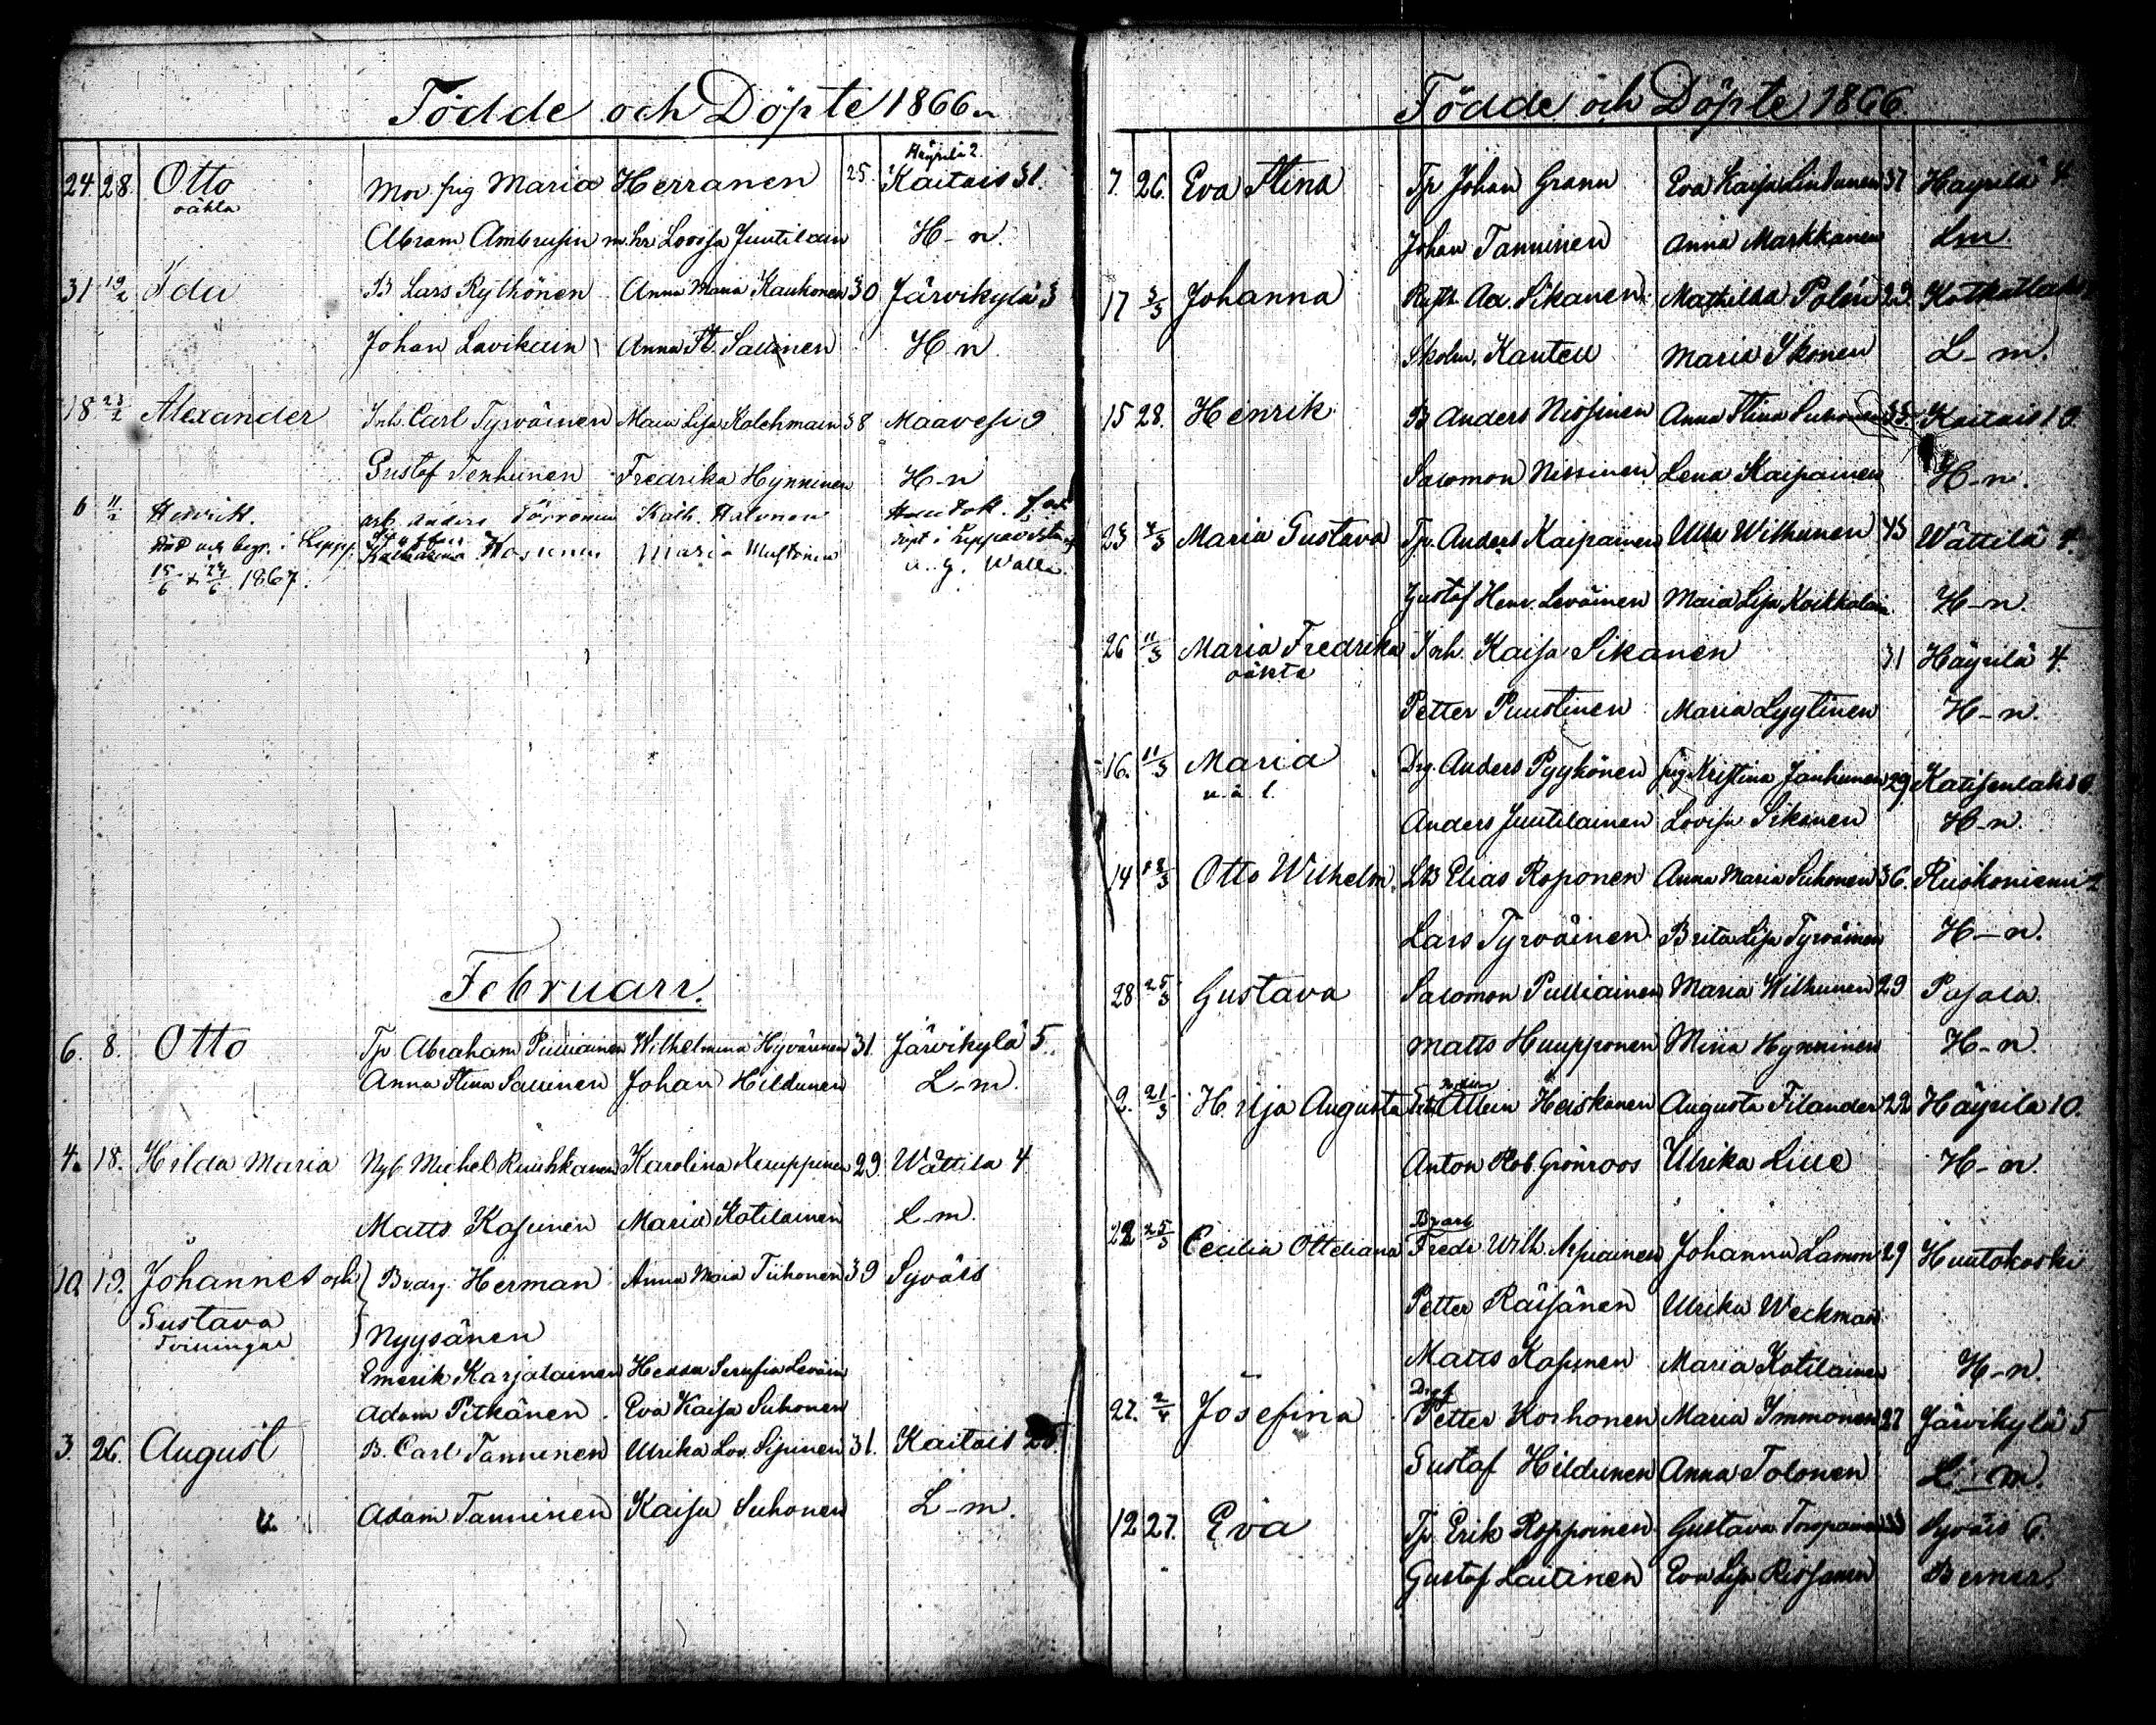 Födde och Döpte 1866.
Häyrilä 2.
24. 28. Otto Mor pig Maria Herranen 25. Kaitais 31.
oäkta
Abram Ambrusin Lovisa Juutilain H-n.
31 19/2 Ida B Lars Rytkönen Anna Maria Kauhonen 30 Järvikylä 3
Johan Lavikain Anna St. Sallinen H-n
18 23/2 Alexander Inh. Carl Tyrväinen Maria Lisa Kolehmain 38 Maavesi 9
Gustaf Tenhunen Fredrika Hynninen H-n
6 11/2 Henrik. arb. Anders Törrönen Kath. Halonen
död och begr. i Leppv. Kosunen Maria Mustonen döpt i Leppävirta
15/6 24/6 1867. a. g. Walle.
Februari.
6. 8. Otto Tp Abraham Pulliainen Wilhelmina Hyvärinen 31. Järvikylä 5.
Anna Stina Sallinen Johan Hildunen L-m.
4. 18. Hilda Maria Nyb. Michel Ruuhkanen Karolina Kauppinen 29. Wättilä 4
Matts Kosunen Maria Kotilainen L-m.
10. 19. Johannes och Herman Anna Maia Tiihonen 39 Syväis
Gustava Nyysänen
Tvillingar
Emerik Karjalainen Hedda Serafia Leväin
Adam Pitkänen Eva Kaisa Suhonen
3. 26. August B. Carl Tanninen Ulrika Lov. Sipinen 31. Kaitais 25.
Adam Tanninen Kaisa Suhonen L-m.
Födde och Döpte 1866.
7. 26. Eva Stina Tp Johan Grann Eva Kaisa Lindunen 37 Häyrilä 4.
Johan Tanninen Anna Markkanen Lm.
17 3/3 Johanna Ad. Sikanen Mathilda Polén 22.
Skolm. Kantell Maria Ikonen L-m.
15 28. Henrik B Anders Nissinen Anna Stina Suhonen 35. Kaitais 19.
Salomon Nissinen Lena Kaipainen H-n.
23 4/3 Maria Gustava Tp. Anders Kaipainen Ulla Wilhunen 43 Wättilä 4.
Gustaf Henr. Leväinen Maia Lisa Koikkalain H-n.
26 11/3 Maria Fredrika Inh. Kaisa Sikanen 31 Häyrilä 4.
oäkta
Petter Puustinen Maria Lyytinen H-n.
16. 11/3 Maria Drg. Anders Pyykönen pig Kristina Jauhiainen 29 Katisenlaks 6
u. ä. l.
Anders Juutilainen Lovisa Sikanen H-n.
14 18/3 Otto Wilhelm LB Elias Roponen Anna Maria Suhonen 36. Ruskoniemi 2
Lars Tyrväinen Brita Lisa Tyrväinen H-n.
28 25/3 Gustava Salomon Pulliainen Maria Wilhunen 29 Pasala
Matts Huupponen Miina Hynninen H-n.
2. 21/3 Hilja Augusta Albin Heiskanen Augusta Filander 22 Häyrilä 10.
Anton Rob. Grönroos Ulrika Lille H-n.
22 25/3 Cecilia Otteliana Fredr. Wilh. Arpiainen Johanna Lamon 29 Huutokoski
Petter Räisänen Ulrika Weckman
Matts Kosunen Maria Kotilainen H-n.
27. 2/4 Josefina Petter Korhonen Maria Immonen 27 Järvikylä 5
Gustaf Hildunen Anna Tolonen L-m.
12 27. Eva Tp. Erik Roppoinen Gustava Toropainen 33 Syväis 6.
Gustaf Laitinen Eva Lisa Rissanen Berner.